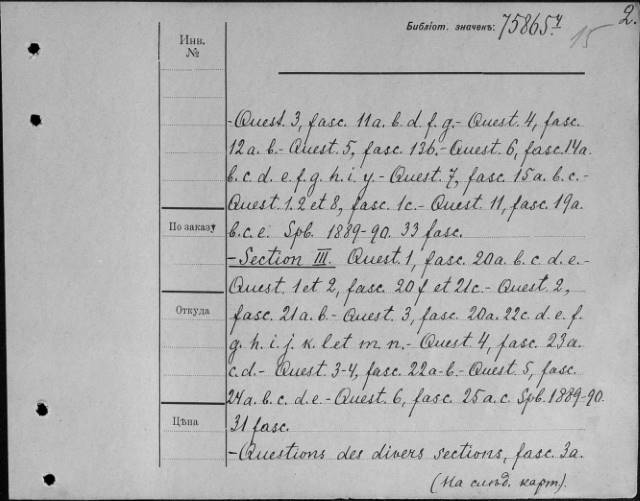 2.
Библіот. значекъ: 75865.4
15
Инв.
№
-Quest. 3, fasc. 11a. b. d. f. g.- Quest. 4, fasc.
12a. b.- Quest. 5, fasc. 13b.- Quest. 6, fasc. 14a.
b. c. d. e. f. g. h. i. y.- Quest. 7, fasc. 15a. b. c.-
Quest. 1. 2 et 8, fasc. 1c.- Quest. 11, fasc. 19a.
По заказу
b. c. e. Spb. 1889-90. 33 fasc.
- Section III. Quest. 1, fasc. 20a. b. c. d. e.-
Quest. 1 et 2, fasc. 20f et 21c.- Quest. 2,
Откуда
fasc. 21a. b.- Quest. 3, fasc. 20a. 22c. d. e. f.
g. h. i. j. k. l et m. n.- Quest. 4, fasc. 23a.
c. d.- Quest. 3-4, fasc. 22a-b.- Quest. 5, fasc.
24a. b. c. d. e.- Quest. 6, fasc. 25a. c. Spb. 1889-90.
Цѣна
31 fasc.
- Questions des divers sections, fasc. 3a.
(На слѣд. карт).